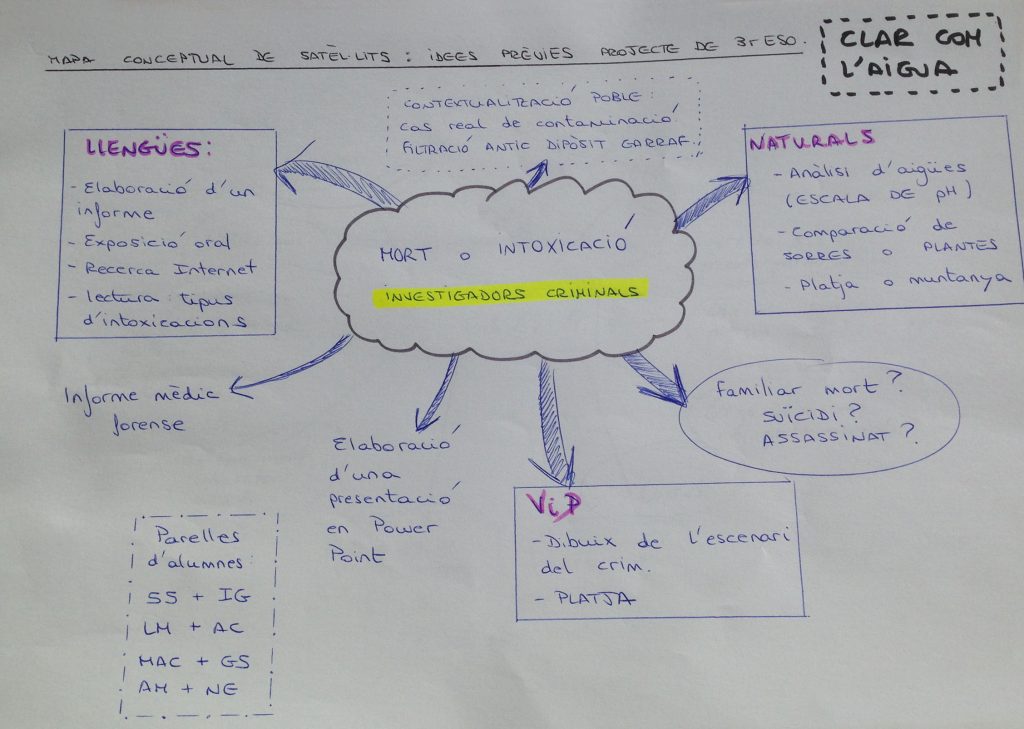 MAPA CONCEPTUAL DE SATÈL·LITS : IDEES PRÈVIES PROJECTE DE 3r ESO.
CLAR COM
L'AIGUA
CONTEXTUALITZACIÓ POBLE:
cas real de contaminació
FILTRACIÓ ANTIC DIPÒSIT GARRAF.
LLENGÜES:
- Elaboració d'un
informe
- Exposició oral
- Recerca Internet
- lectura: tipus
d'intoxicacions
NATURALS
- Anàlisi d'aigües
(ESCALA DE pH)
- Comparació de
SORRES o PLANTES
- Platja o muntanya
MORT o INTOXICACIÓ
INVESTIGADORS CRIMINALS
Informe mèdic
forense
Elaboració
d'una
presentació
en Power
Point
ViP
- Dibuix de l'escenari
del crim.
- PLATJA
familiar mort?
SUÏCIDI?
ASSASSINAT?
Parelles
d'alumnes:
SS + IG
LM + AC
MAC + GS
AM + NE